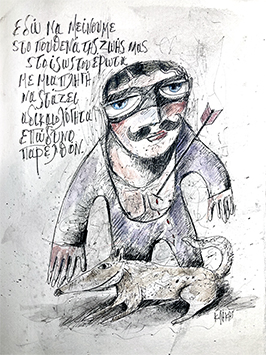 Εδώ να μείνουμε
στο πουθενά της ζωής μας
στο ίσως του έρωτα
με μια πληγή
να στάζει
επώδυνο
παρελθόν.